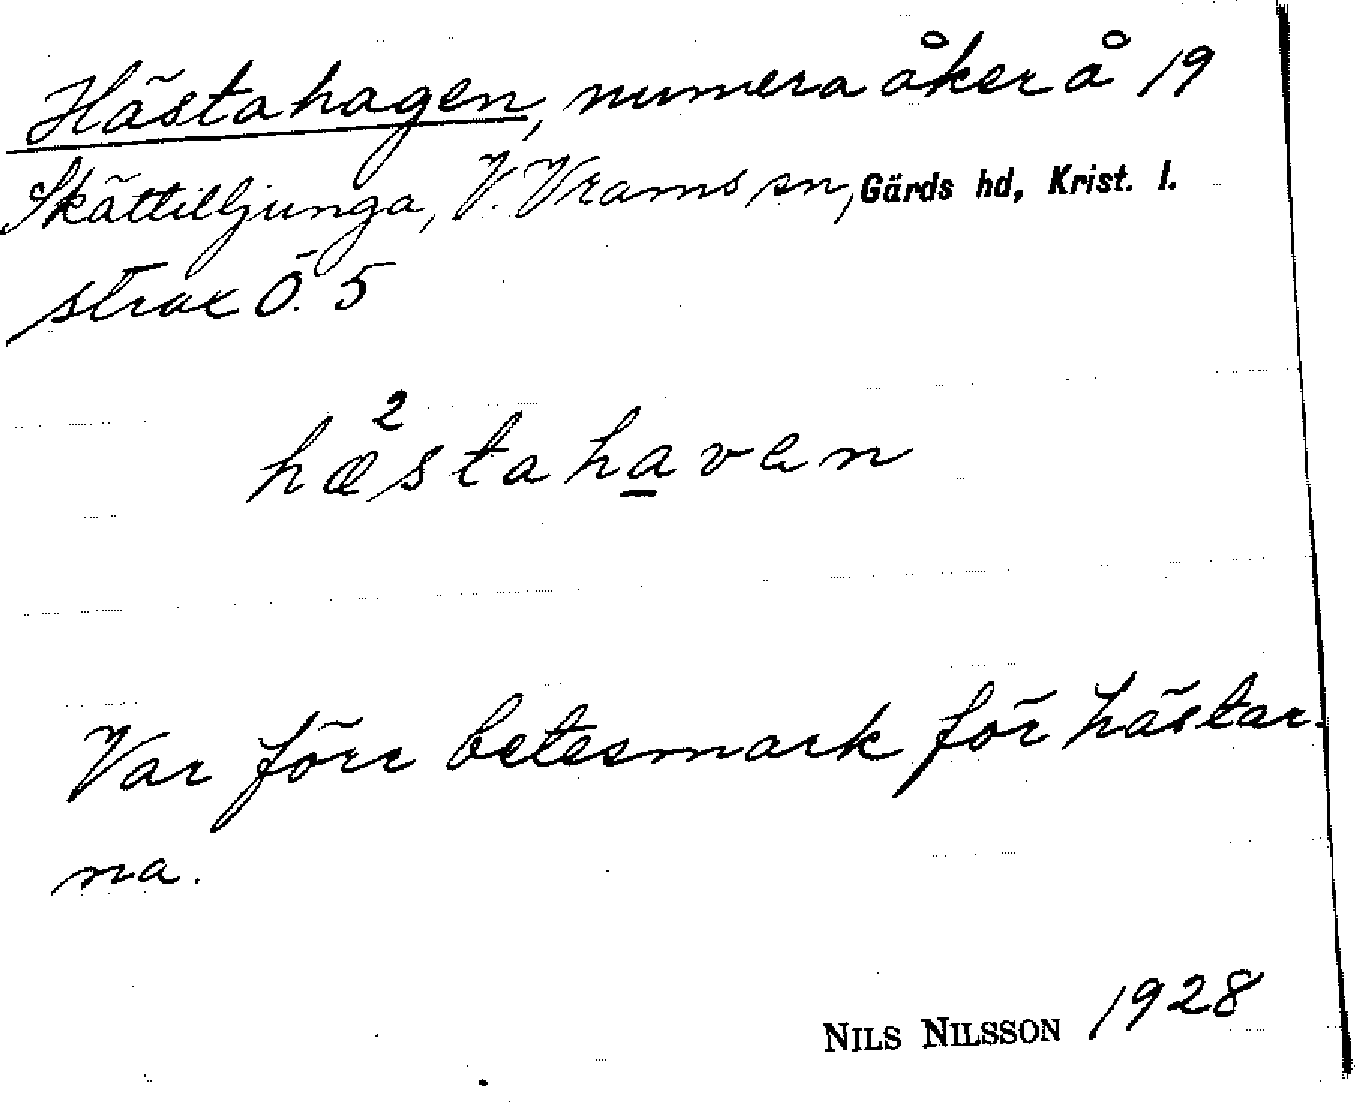 Hästahagen, numera åker å 19
Skättilljunga, V. Vrams sn, Gärds hd, Krist. l.
strax Ö. 5
2
hæstahaven
Var förr betesmark för hästar-
na.
NILS NILSSON 1928